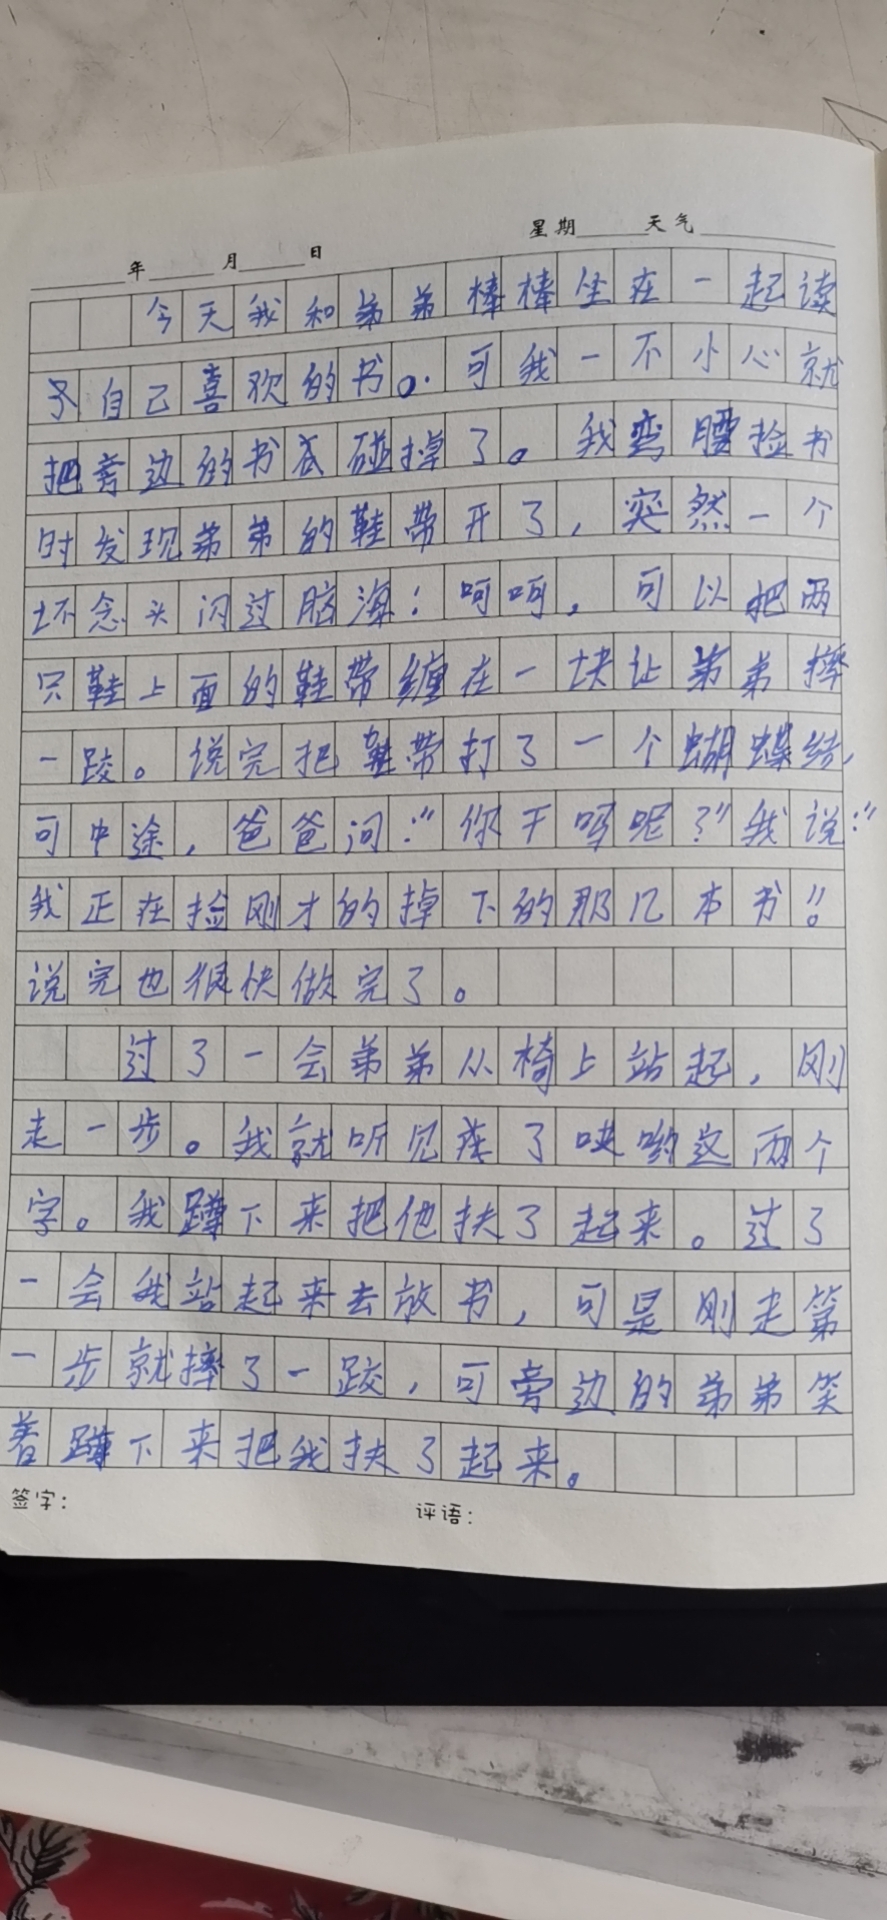 年 月 日 星期 天气
今天我和弟弟棒棒坐在一起读
予自己喜欢的书。可我一不小心就
把旁边的书衣碰掉了。我弯腰捡书
时发现弟弟的鞋带开了,突然一个
坏念头闪过脑海:呵呵,可以把两
只鞋上面的鞋带缠在一块让弟弟摔
一跤。说完把鞋带打了一个蝴蝶结,
可中途,爸爸问:“你干吗呢?”我说:“
我正在捡刚才的掉下的那几本书”。
说完也很快做完了。
过了一会弟弟从椅上站起,刚
走一步。我就听见了哎哟这两个
字。我蹲下来把他扶了起来。过了
一会我站起来去放书,可是刚走第
一步就摔了一跤,可旁边的弟弟笑
着蹲下来把我扶了起来。
签字: 评语: